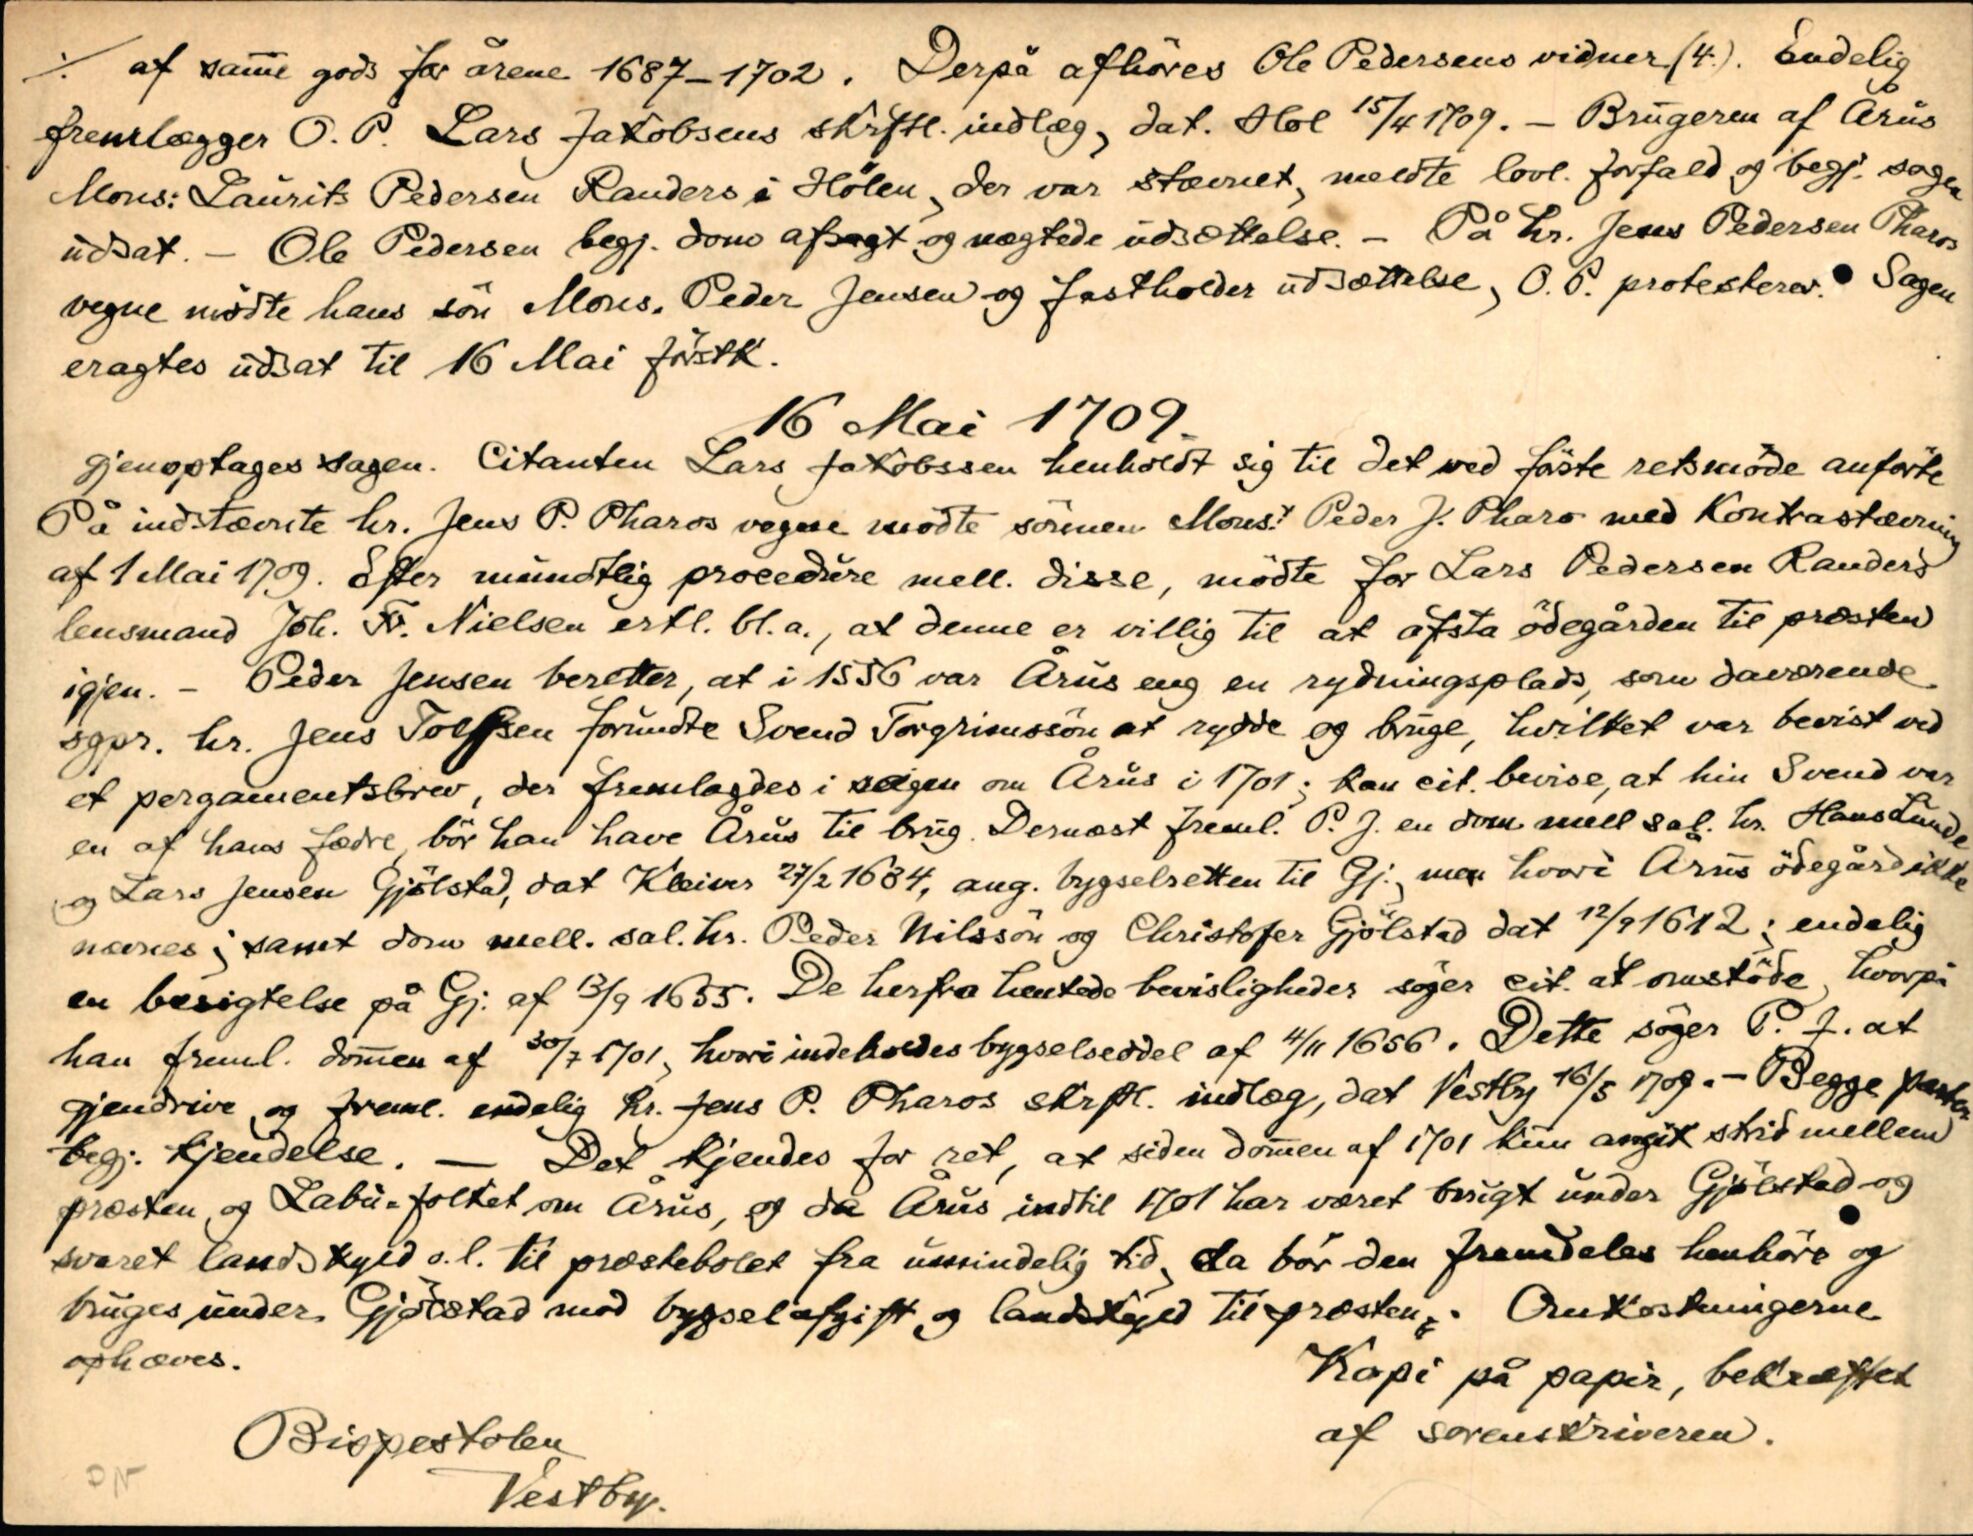 ·/. af samme gods for årene 1687–1702. Derpå afhöres Ole Pedersens vidner (4). Endelig
fremlægger O. P. Lars Jakobsens skrftl. indlæg, dat. Hol 15/4 1709. – Brugeren af Årus
Mons: Laurits Pedersen Randers i Hölen, der var stævnet, meldte lovl. forfald og begj. sagen
udsat. – Ole Pedersen begj. dom afsagt og nægtede udsættelse. – På hr. Jens Pedersen Pharos
vegne mödte hans sön Mons. Peder Jensen og fastholder udsættelse, O. P. protesterer. Sagen
eragtes udsat til 16 Mai förstk.
16 Mai 1709.
gjenoptages sagen. Citanten Lars Jakobssen henholdt sig til det ved förste retsmöde anförte
På indstævnte hr. Jens P. Pharos vegne mödte sönnen Mons:r Peder J. Pharo med Kontrastævning
af 1 Mai 1709. Efter mundtlig procedure mell. disse, mödte for Lars Pedersen Randers
lensmand Joh. Fr. Nielsen erkl. bl.a., at denne er villig til at afsta ödegården til præsten
igjen. – Peder Jensen beretter, at i 1556 var Årus eng en rydningsplads, som daværende
sgpr. hr. Jens Tolfsen forundte Svend Torgrimssön at rydde og bruge, hvilket var bevist ved
et pergamentsbrev, der fremlagdes i sagen om Årus i 1701; kan cit. bevise, at hin Svend var
en af hans fædre, bör han have Årus til brug. Dernæst freml. P. J. en dom mell sal. hr. Hans Lunde
og Lars Jensen Gjölstad, dat Kleiver 27/2 1684, ang. bygselretten til Gj., men hvori Årus ödegård ikke
nævnes; samt dom mell. sal. hr. Peder Nilssön og Christofer Gjölstad dat 12/9 1612; endelig
en besigtelse på Gj. af 13/9 1655. De herfra hentede bevisligheder söger cit. at omstöde, hvorpå
han freml. dommen af 30/7 1701, hvori indeholdes bygselseddel af 4/11 1656. Dette söger P. J. at
gjendrive og freml. endelig hr. Jens P. Pharos skrftl. indlæg, dat Vestby 16/5 1709. – Begge parter
begj. kjendelse. — Det kjendes for ret, at siden dommen af 1701 kun angik strid mellem
præsten og Labu-folket om Årus, og da Årus indtil 1701 har været brugt under Gjölstad og
svaret landskyld o.l. til præstebolet fra umindelig tid, da bör den fremdeles henhöre og
bruges under Gjölstad mod bygselafgift og landskyld til præsten. Omkostningerne
ophæves.
Kopi på papir, bekræftet
af sorenskriveren.
Bispestolen
Vestby.
DN